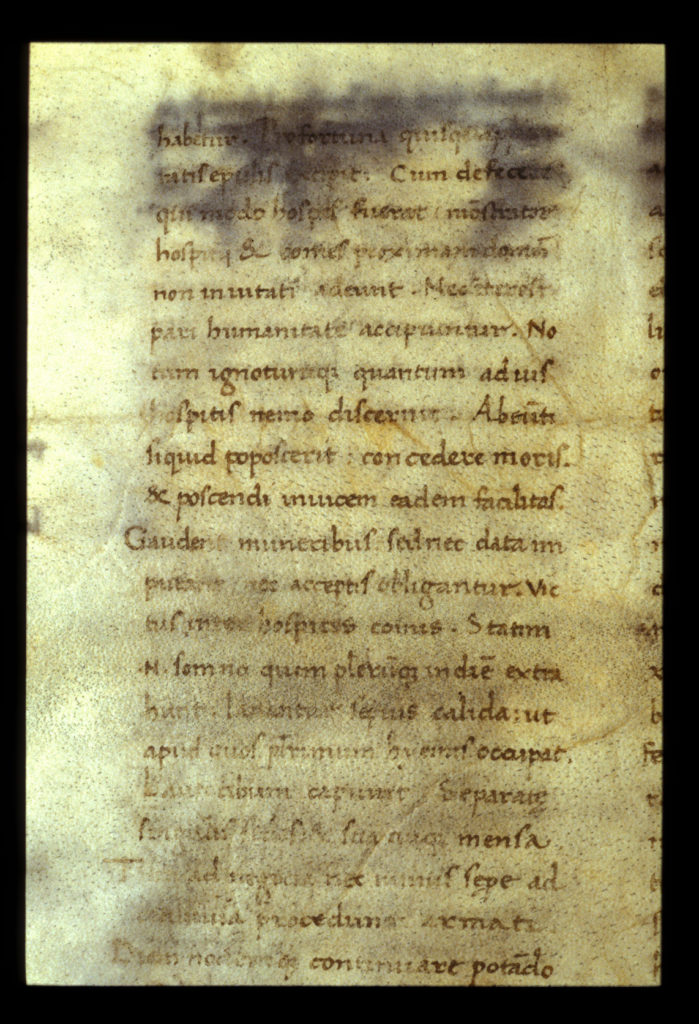 habetur. Pro fortuna quisque
ratis epulis excipit: Cum defecere
qui modo hospes fuerat monstrator
hospitii & comes proximam domū
non inuitati adeunt. Nec interest
pari humanitate accipiuntur. No
tum ignotumq; quantum ad ius
hospitis nemo discernit. Abeūti
siquid poposcerit: concedere moris.
& poscendi inuicem eadem facilitas.
Gaudent muneribus sed nec data im
putant nec acceptis obligantur. Vic
tus inter hospites comis. Statim
.N. somno quem plerūq; in diē extra
hunt. lauantur sepius calida: ut
apud quos plrimum hyems occupat.
Lauti cibum capiunt. Separatę
singulis sedes & sua cuiq; mensa
Tum ad negotia nec minus sępe ad
conuiuia procedunt armati.
Diem noctemq; continuare potādo